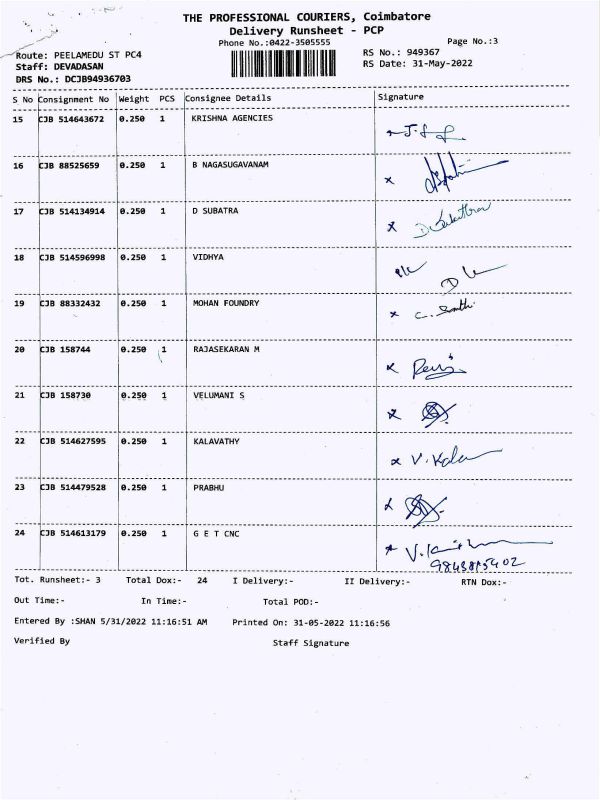 THE PROFESSIONAL COURIERS, Coimbatore
Delivery Runsheet - PCP
Phone No.:0422-3505555
Page No.:3
Route: PEELAMEDU ST PC4
RS No.: 949367
Staff: DEVADASAN
RS Date: 31-May-2022
DRS No.: DCJB94936703
S No Consignment No Weight PCS Consignee Details Signature
15 CJB 514643672 0.250 1 KRISHNA AGENCIES
16 CJB 88525659 0.250 1 B NAGASUGAVANAM
17 CJB 514134914 0.250 1 D SUBATRA
18 CJB 514596998 0.250 1 VIDHYA
19 CJB 88332432 0.250 1 MOHAN FOUNDRY
20 CJB 158744 0.250 1 RAJASEKARAN M
21 CJB 158730 0.250 1 VELUMANI S
22 CJB 514627595 0.250 1 KALAVATHY
23 CJB 514479528 0.250 1 PRABHU
24 CJB 514613179 0.250 1 G E T CNC
Tot. Runsheet:- 3 Total Dox:- 24 I Delivery:- II Delivery:- RTN Dox:-
Out Time:- In Time:- Total POD:-
Entered By :SHAN 5/31/2022 11:16:51 AM Printed On: 31-05-2022 11:16:56
Verified By Staff Signature